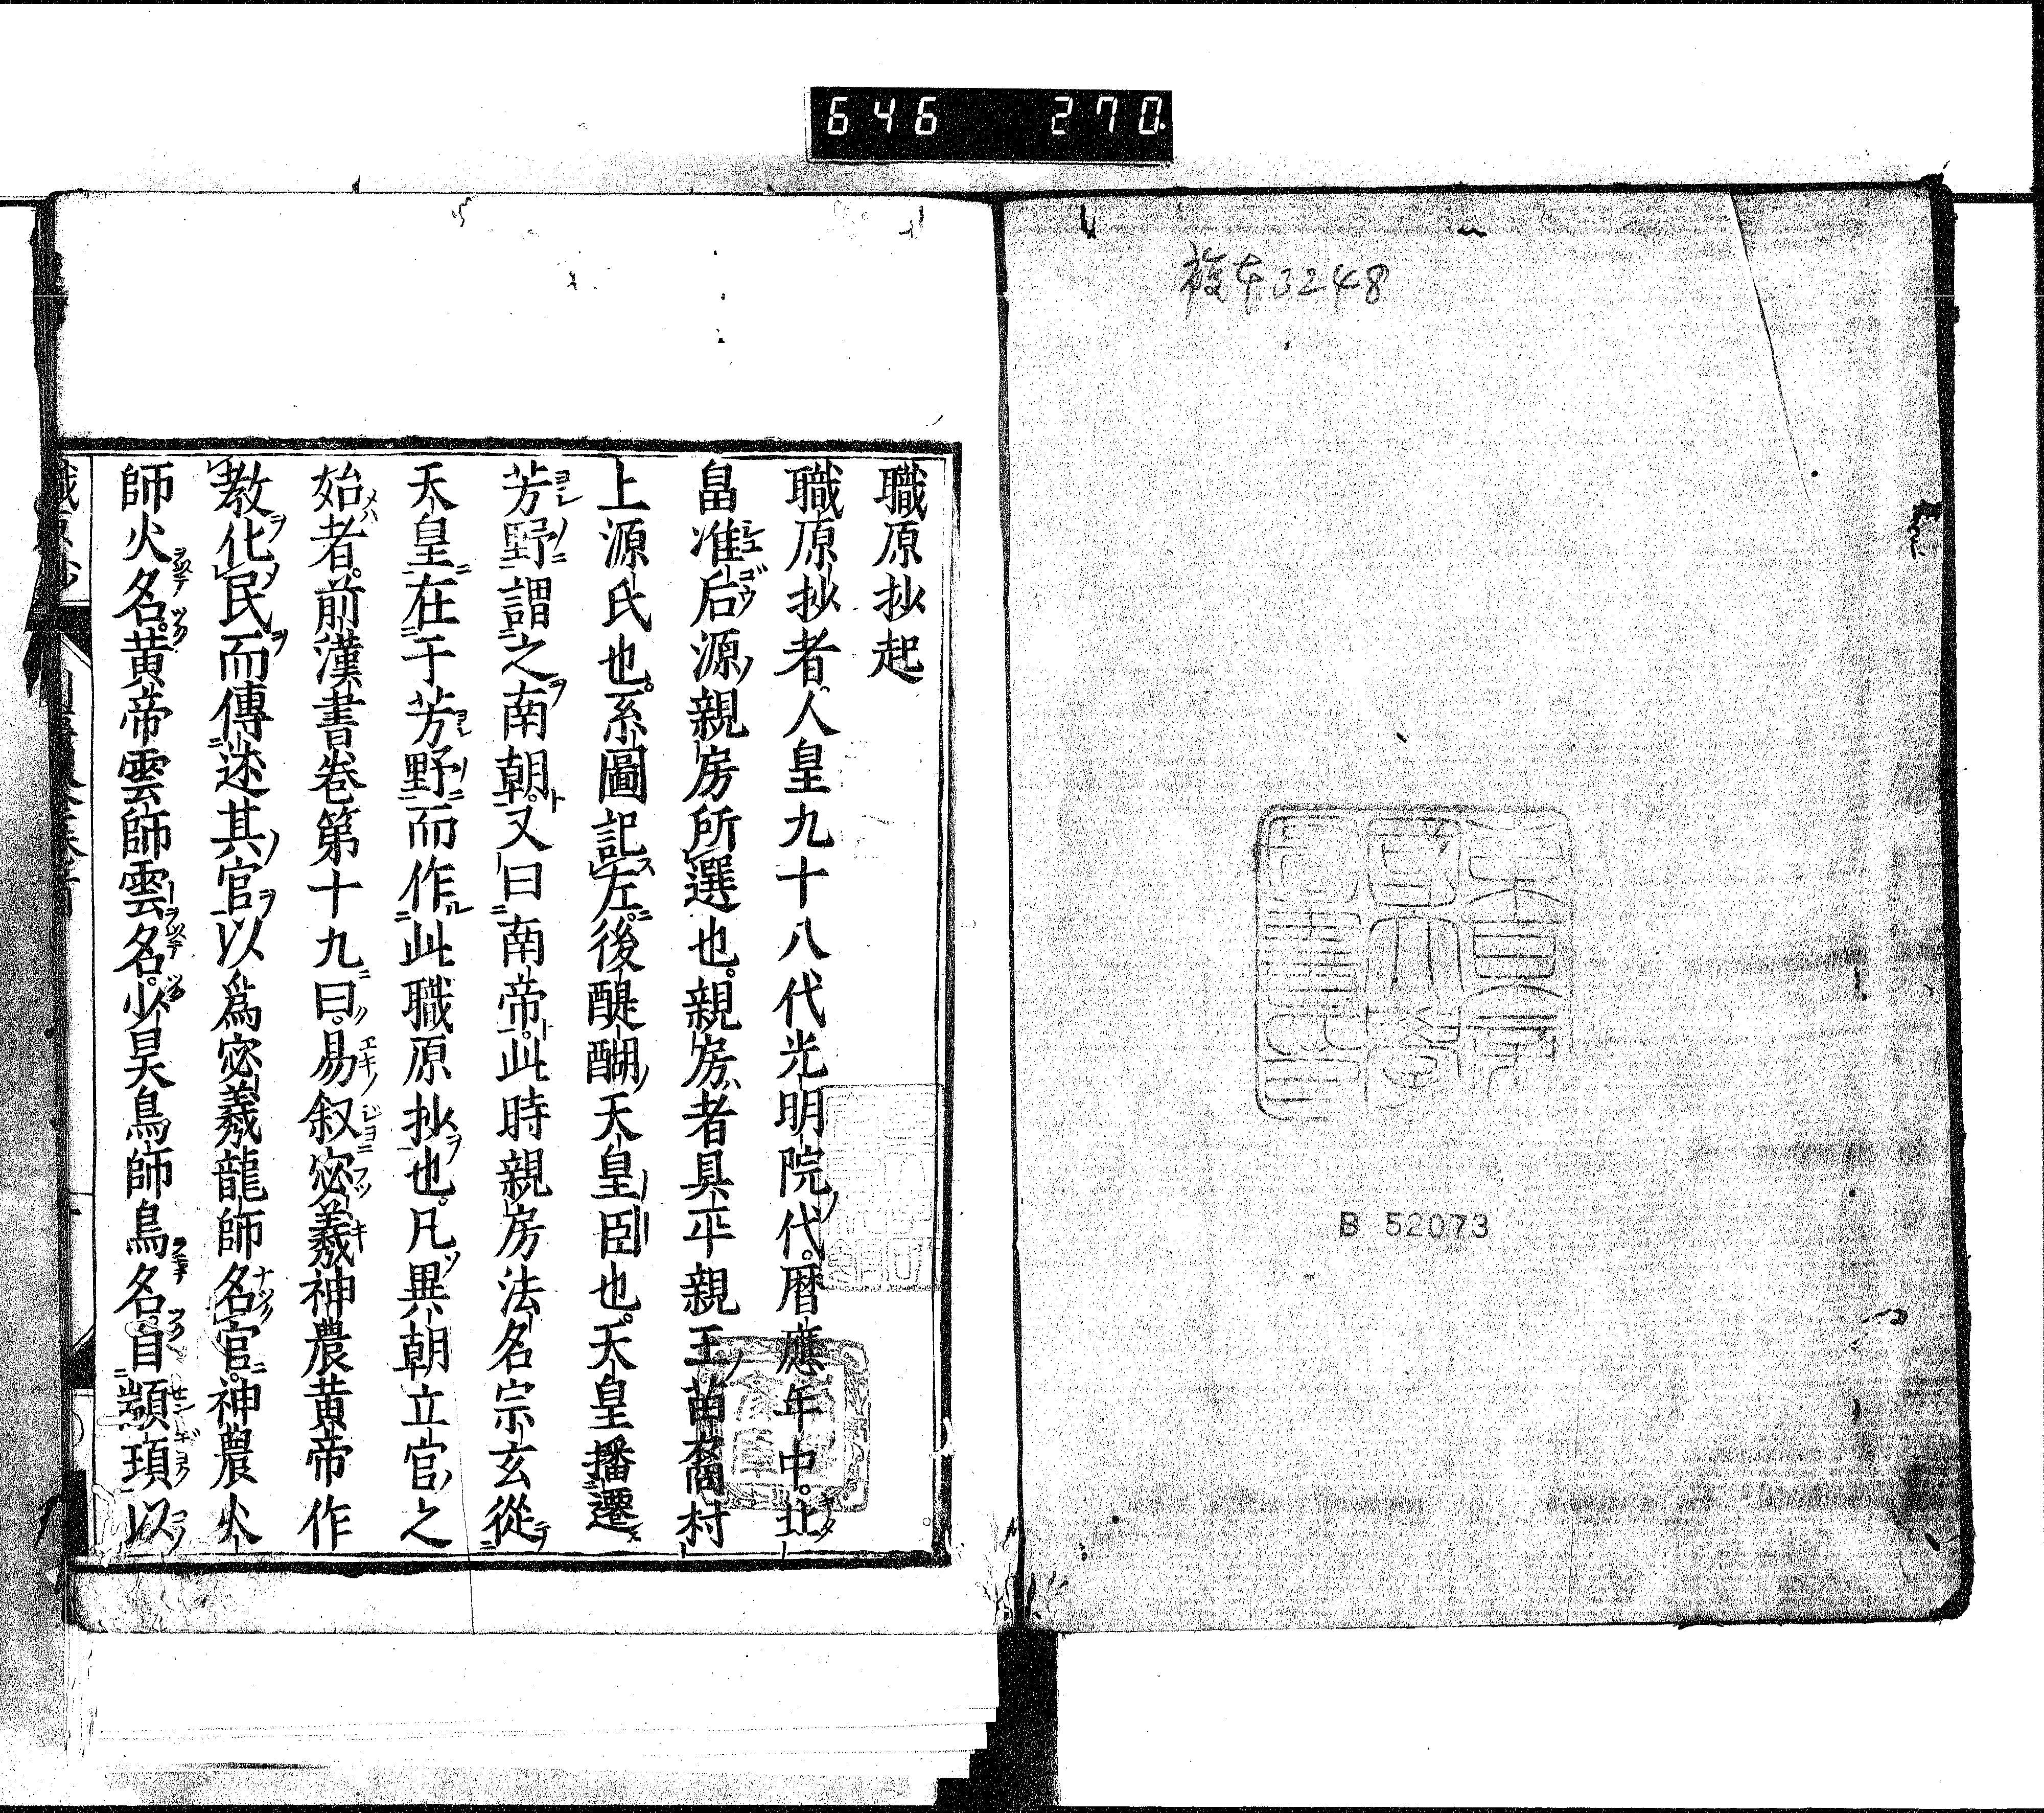 646 270.
複本3248
東京帝
國大學
圖書印
B 52073
職原抄起
職原抄者。人皇九十八代光明院ノ代。暦應年中。北
畠准后源ノ親房所選也。親房ハ者具平親王ノ苗裔村
上源氏也。系圖記左。後醍醐ノ天皇ノ臣也。天皇播遷
芳野謂之南朝。又曰南帝。此時親房法名宗玄從
天皇在于芳野而作此職原抄也。凡異朝立官ノ之
始者。前漢書巻第十九曰。易叙宓羲神農黄帝作
教化民而傳述其官以爲宓羲龍師名官。神農火
師火名。黄帝雲師雲名。少昊鳥師鳥名。自顓頊以